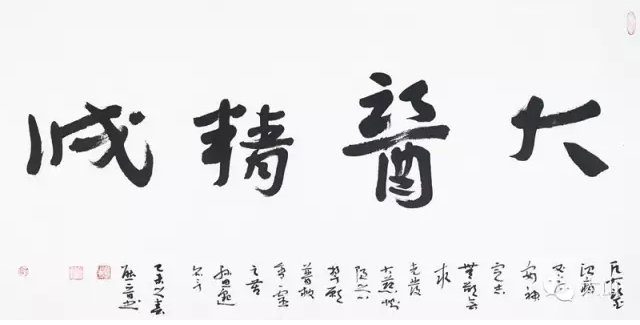 大醫精誠
凡大醫
治病
必當
安神
定志
無欲無
求
先發
大慈惻
隱之心
誓願
普救
含靈
之苦
孫思邈
乙未之春